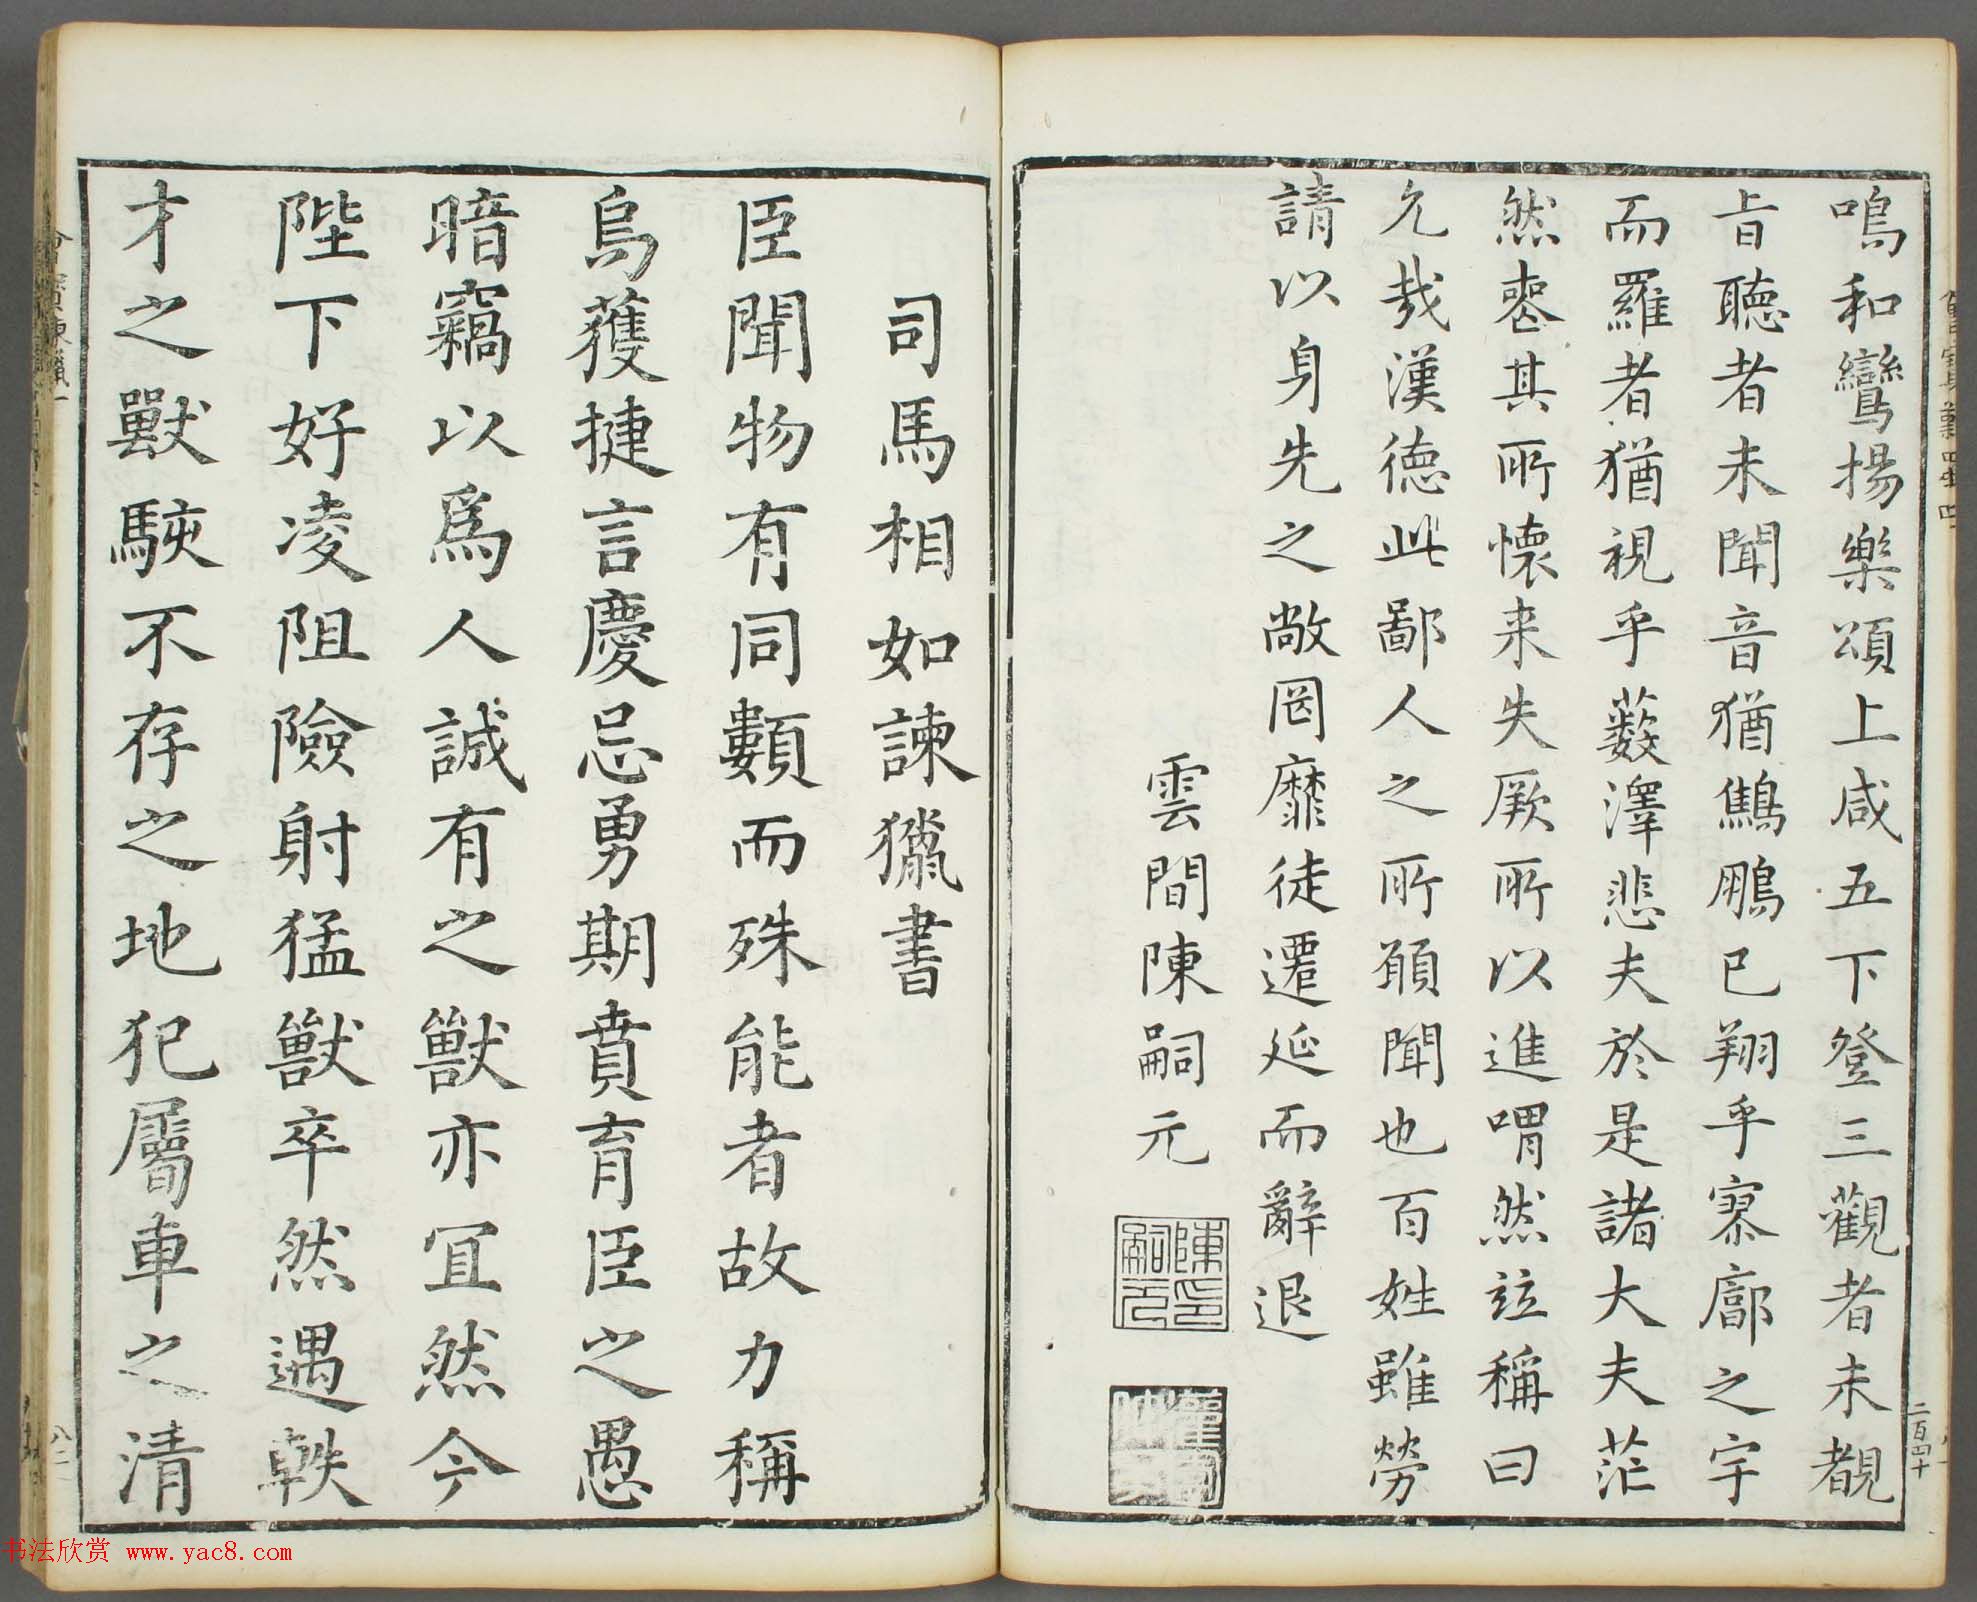 鳴和鸞揚樂頌上咸五下登三觀者未覩
旨聽者未聞音猶鷦鵬已翔乎寥廓之宇
而羅者猶視乎藪澤悲夫於是諸大夫茫
然喪其所懷来失厥所以進喟然竝稱曰
允哉漢德此鄙人之所願聞也百姓雖勞
請以身先之敞罔靡徒遷延而辭退
雲間陳嗣元
陳嗣元印
司馬相如諫獵書
臣聞物有同類而殊能者故力稱
烏獲捷言慶忌勇期賁育臣之愚
暗竊以爲人誠有之獸亦宜然今
陛下好凌阻險射猛獸卒然遇軼
才之獸駭不存之地犯屬車之清
二百四十
书法欣赏 www.yac8.com